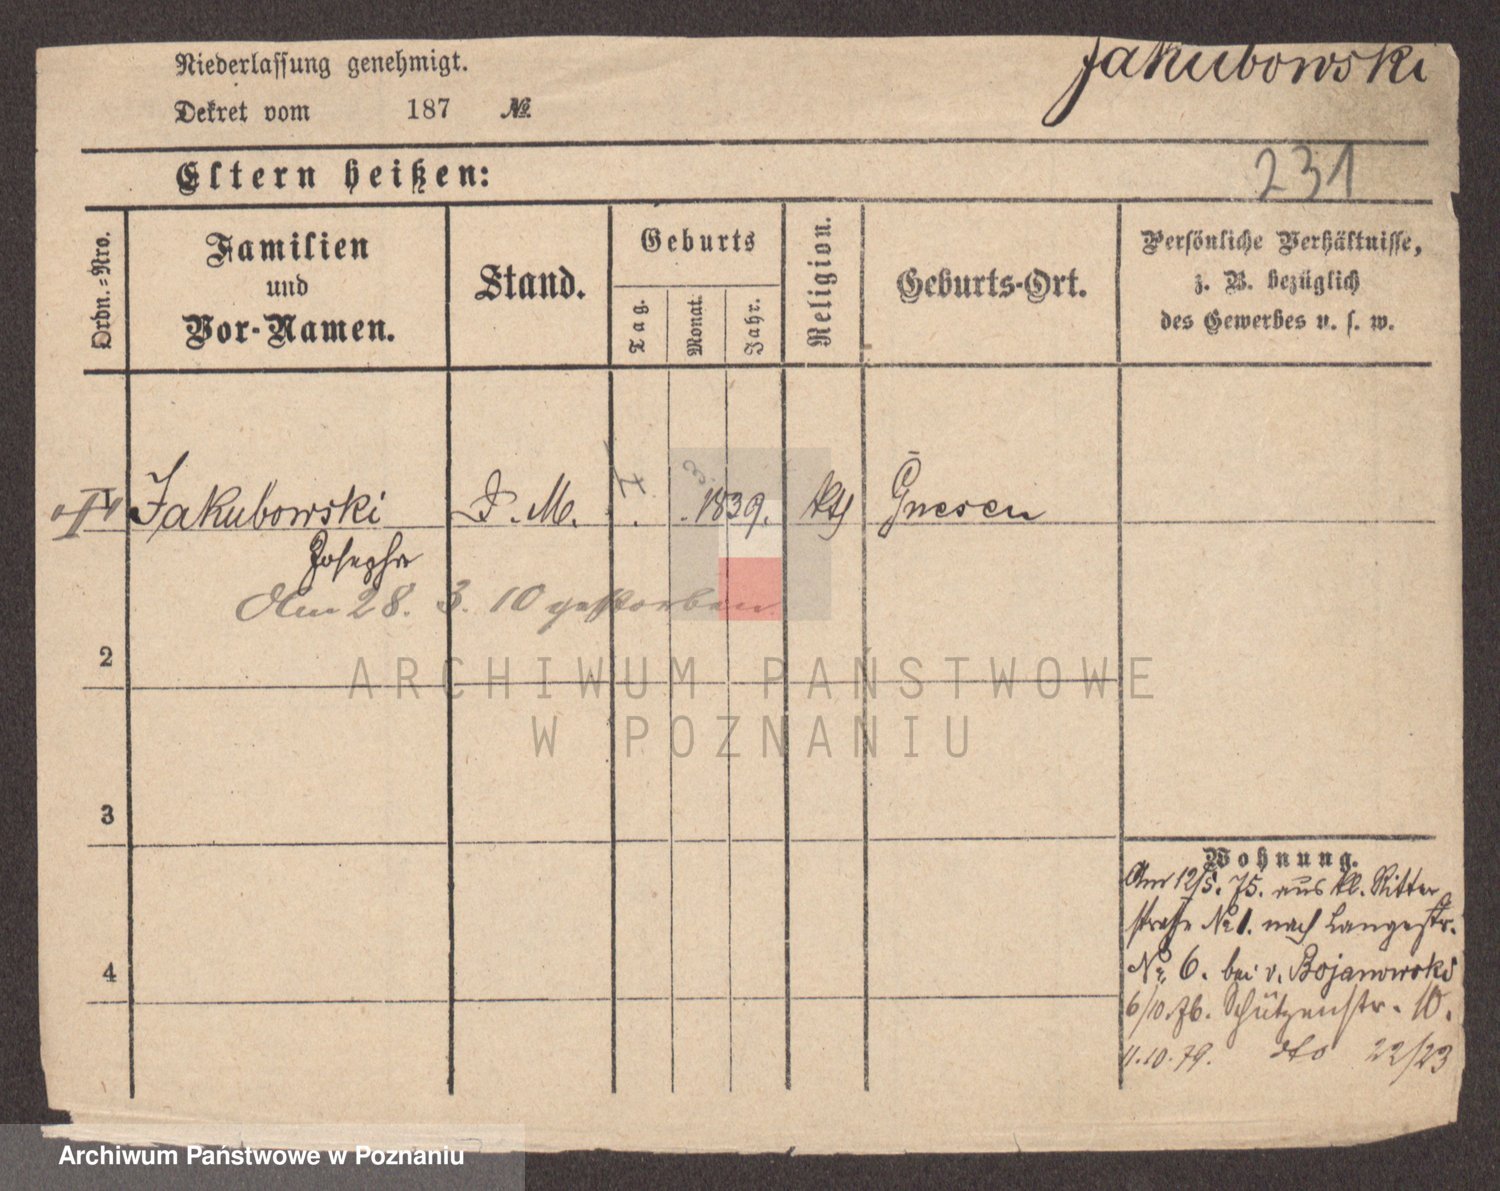 Niederlassung genehmigt.
Jakubowski
Dekret vom 187 №
231
Eltern heißen:
Ordn.-Nro.
Familien
und
Vor-Namen.
Stand.
Geburts
Tag.
Monat.
Jahr.
Religion.
Geburts-Ort.
Persönliche Verhältnisse,
z. B. bezüglich
des Gewerbes u. s. w.
Jakubowski D. M. 1839. kth Gnesen
Josepha
Am 28. 3. 10 gestorben
2
3
4
Wohnung.
Am 12/5. 75. aus kl. Ritter
straße № 1. nach Langestr.
№ 6. bei v. Bojanowski
6/10. 76. Schützenstr. 10.
11.10.79. dto 22/23
ARCHIWUM PAŃSTWOWE
W POZNANIU
Archiwum Państwowe w Poznaniu